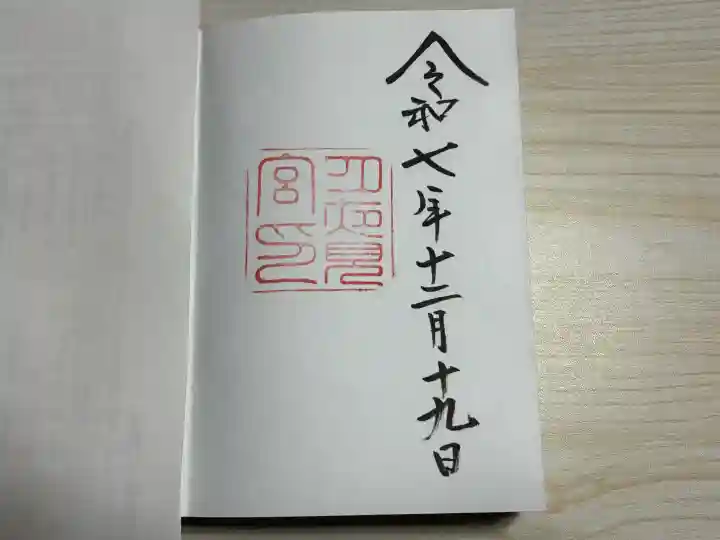 令和七年十二月十九日
月夜見
宮印